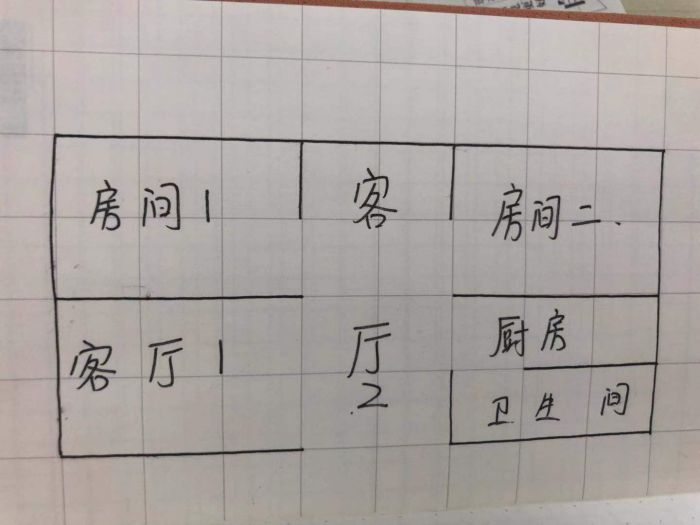 房间1
客
房间二.
客厅1
厅
2
厨房
卫生间